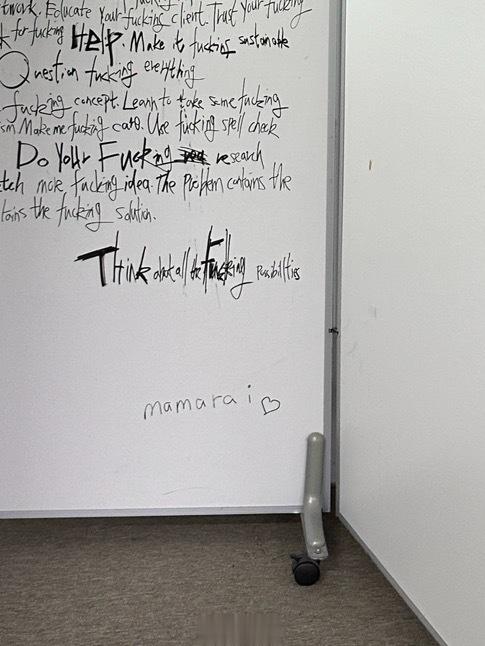 twork. Educate Your fucking client. Trust Your fucking
k for fucking Help. Make it fucking sustainable
Question fucking everything
fucking concept. Learn to take some fucking
ism Make me fucking care. Use fucking spell check
Do Your Fucking research
etch more fucking idea. The Problem contains the
tains the fucking solution.
Think about all the Fucking possibilities
mamarai♡